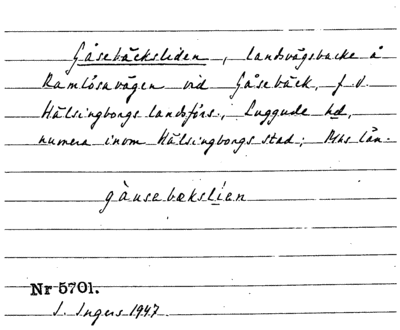 Gåsebäcksliden, landsvägsbacke å
Ramlösavägen vid Gåsebäck, f. d.
Hälsingborgs landsförs., Luggude hd,
numera inom Hälsingborgs stad; Mhs län.
gàusebækslíen
Nr 5701.
I. Ingers 1947.